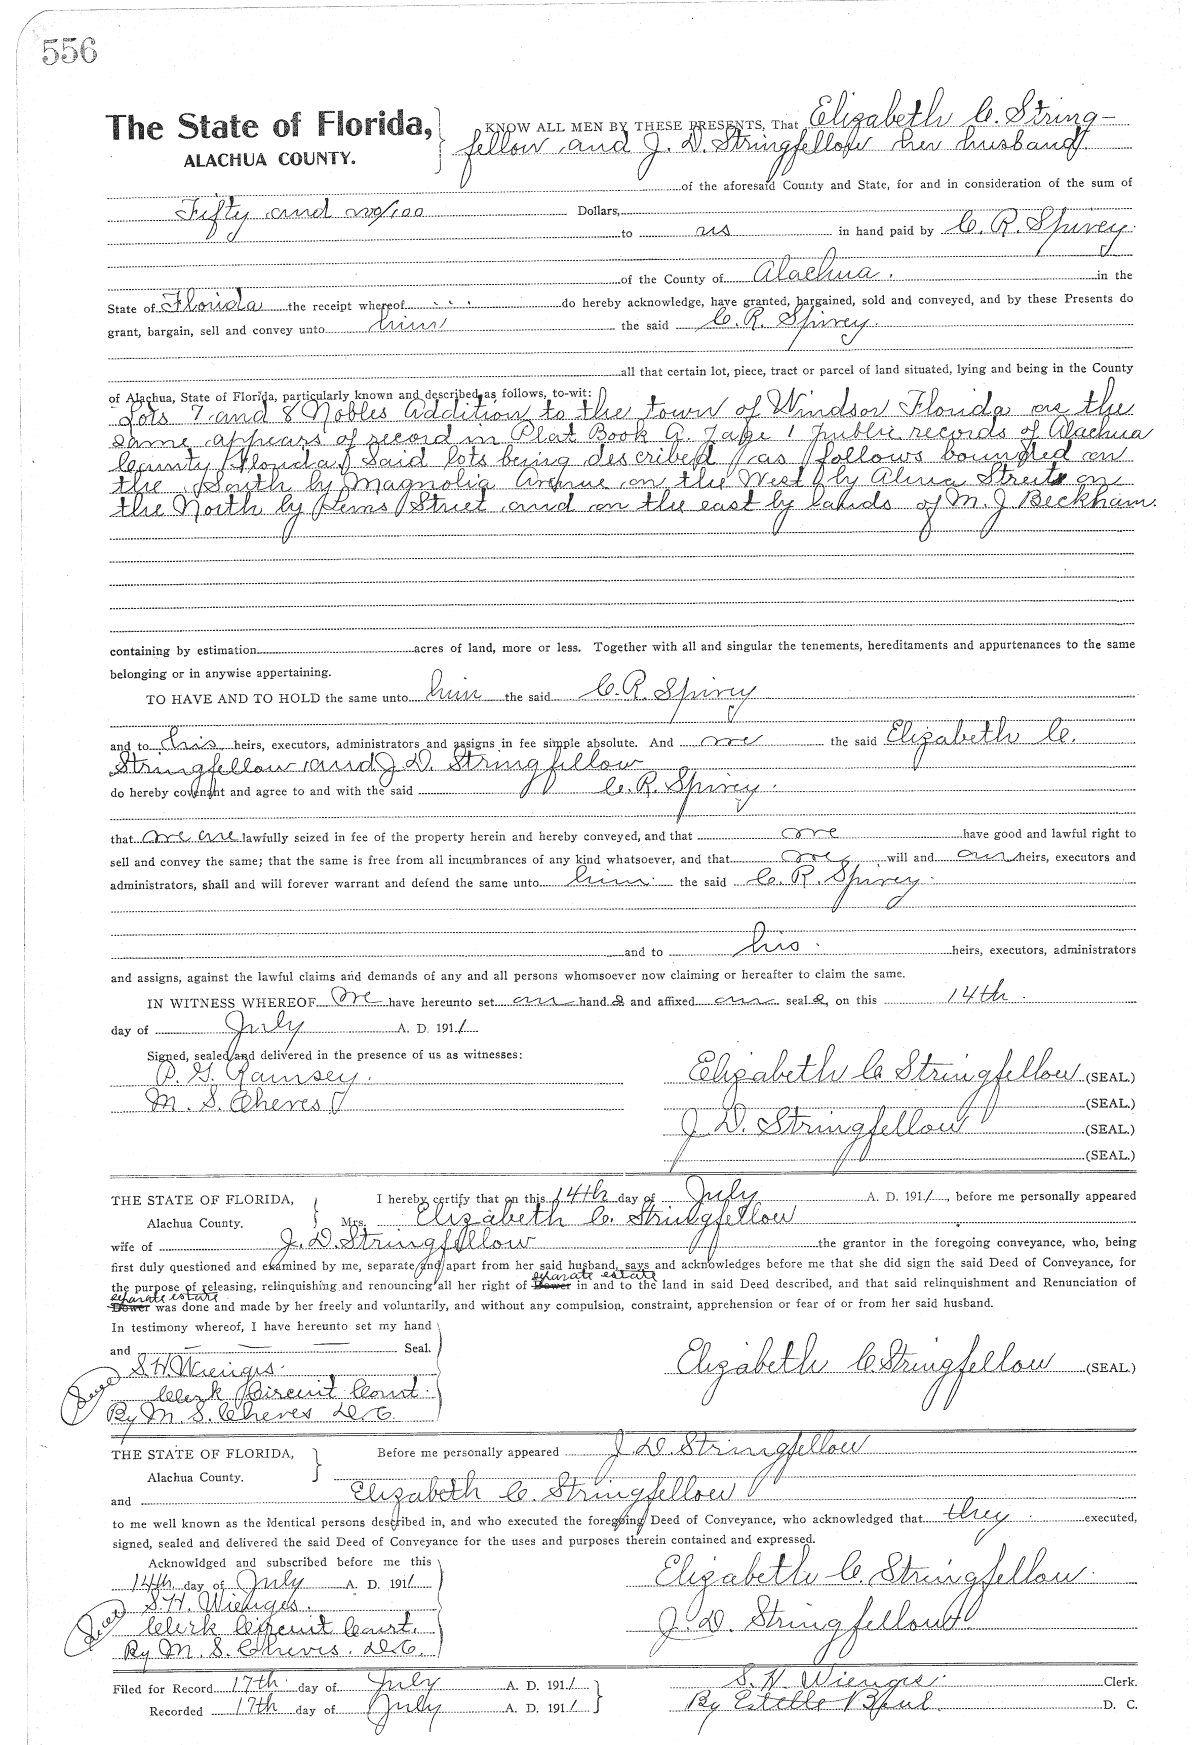 556
The State of Florida,
ALACHUA COUNTY.
KNOW ALL MEN BY THESE PRESENTS, That Elizabeth C. String-
fellow and J. D. Stringfellow her husband
of the aforesaid County and State, for and in consideration of the sum of
Fifty and no/100 Dollars,
to us in hand paid by C. R. Spivey.
of the County of Alachua. in the
State of Florida the receipt whereof do hereby acknowledge, have granted, bargained, sold and conveyed, and by these Presents do
grant, bargain, sell and convey unto him the said C. R. Spivey.
all that certain lot, piece, tract or parcel of land situated, lying and being in the County
of Alachua, State of Florida, particularly known and described as follows, to-wit:
Lots 7 and 8 Nobles Addition to the town of Windsor Florida as the
same appears of record in Plat Book A. Page 1 public records of Alachua
County Florida, Said lots being described as follows bounded on
the South by Magnolia Avenue on the West by Alma Street on
the North by Street and on the east by lands of M. J. Beckham.
containing by estimation acres of land, more or less. Together with all and singular the tenements, hereditaments and appurtenances to the same
belonging or in anywise appertaining.
TO HAVE AND TO HOLD the same unto him the said C. R. Spivey
and to his heirs, executors, administrators and assigns in fee simple absolute. And we the said Elizabeth C.
Stringfellow and J. D. Stringfellow
do hereby covenant and agree to and with the said C. R. Spivey.
that we are lawfully seized in fee of the property herein and hereby conveyed, and that we have good and lawful right to
sell and convey the same; that the same is free from all incumbrances of any kind whatsoever, and that we will and our heirs, executors and
administrators, shall and will forever warrant and defend the same unto him the said C. R. Spivey.
and to his. heirs, executors, administrators
and assigns, against the lawful claims and demands of any and all persons whomsoever now claiming or hereafter to claim the same.
IN WITNESS WHEREOF We have hereunto set our hand s and affixed our seal s, on this 14th.
day of July A. D. 1911
Signed, sealed and delivered in the presence of us as witnesses:
P. G. Ramsey.
M. S. Cheves
Elizabeth C. Stringfellow (SEAL.)
(SEAL.)
J. D. Stringfellow (SEAL.)
(SEAL.)
THE STATE OF FLORIDA,
Alachua County.
I hereby certify that on this 14th day of July A. D. 1911, before me personally appeared
Mrs. Elizabeth C. Stringfellow
wife of J. D. Stringfellow the grantor in the foregoing conveyance, who, being
first duly questioned and examined by me, separate and apart from her said husband, says and acknowledges before me that she did sign the said Deed of Conveyance, for
the purpose of releasing, relinquishing and renouncing all her right of Dower separate estate in and to the land in said Deed described, and that said relinquishment and Renunciation of
Dower separate estate was done and made by her freely and voluntarily, and without any compulsion, constraint, apprehension or fear of or from her said husband.
In testimony whereof, I have hereunto set my hand
and Seal.
S. H. Wienges.
Clerk Circuit Court.
By M. S. Cheves D.C.
Elizabeth C. Stringfellow (SEAL.)
THE STATE OF FLORIDA,
Alachua County.
Before me personally appeared J. D. Stringfellow
and Elizabeth C. Stringfellow
to me well known as the identical persons described in, and who executed the foregoing Deed of Conveyance, who acknowledged that they executed,
signed, sealed and delivered the said Deed of Conveyance for the uses and purposes therein contained and expressed.
Acknowldged and subscribed before me this
14th day of July A. D. 1911
S. H. Wienges.
Clerk Circuit Court.
By M. S. Cheves. D.C.
Elizabeth C. Stringfellow.
J. D. Stringfellow
Filed for Record 17th day of July A. D. 1911
Recorded 17th day of July A. D. 1911
S. H. Wienges. Clerk.
By Estelle B. Paul. D. C.